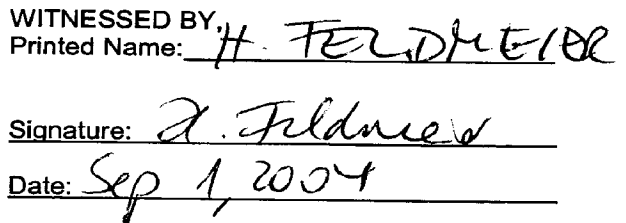 WITNESSED BY,
Printed Name: H. FELDMEIER
Signature: H. Feldmeier
Date: Sep 1, 2004